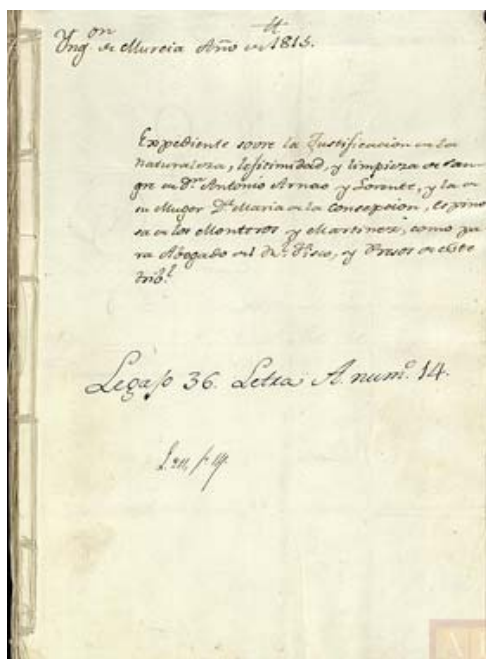 Ynq.on de Murcia Año de 1815.
Expediente sovre la Justificacion de la
naturaleza, lefitimidad, y limpieza de san-
gre de Dn. Antonio Arnao y Lorente, y la de
su Muger Da. Maria de la Concepcion, Espino
sa de los Monteros y Martinez, como pa
ra Abogado del Rl. Fisco, y Presos de este
trib.l
Legajo 36. Letra A. num.o 14.